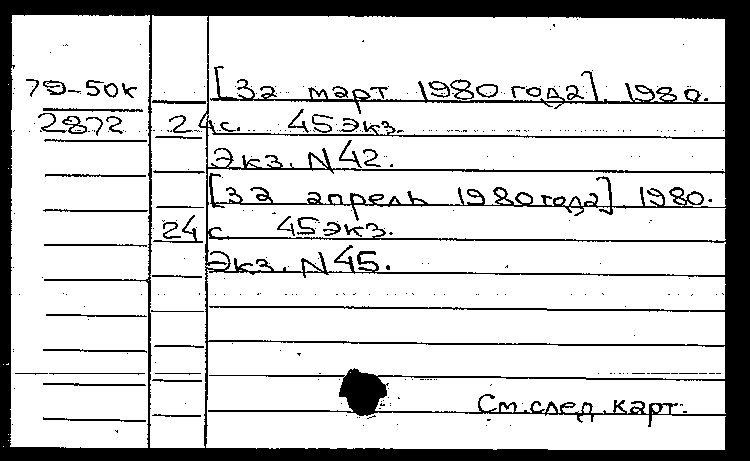 79-50к [За март 1980 года]. 1980.
2872 24с. 45экз.
Экз. N42.
[За апрель 1980года] 1980.
24с 45экз.
Экз. N45.
См.след.карт.